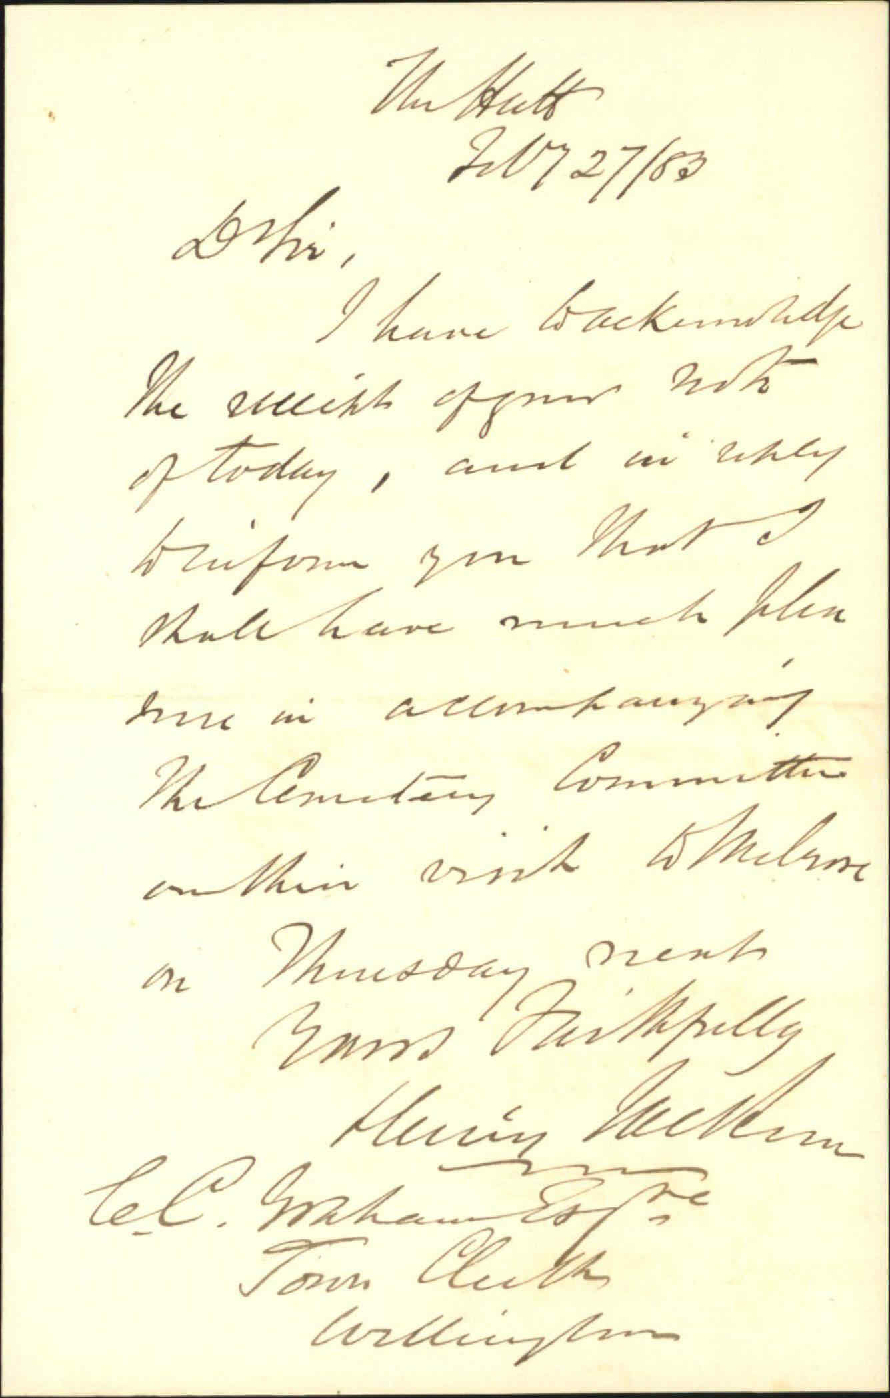 The Hutt
Feby 27/83
D Sir,
I have to acknowledge
the receipt of your note
of today, and in reply
to inform you that I
shall have much plea
sure in accompanying
the Cemetery Committee
on their visit to Melrose
on Thursday next
Yours Faithfully
Henry Jackson
C.C. Graham Esqre
Town Clerk
Wellington